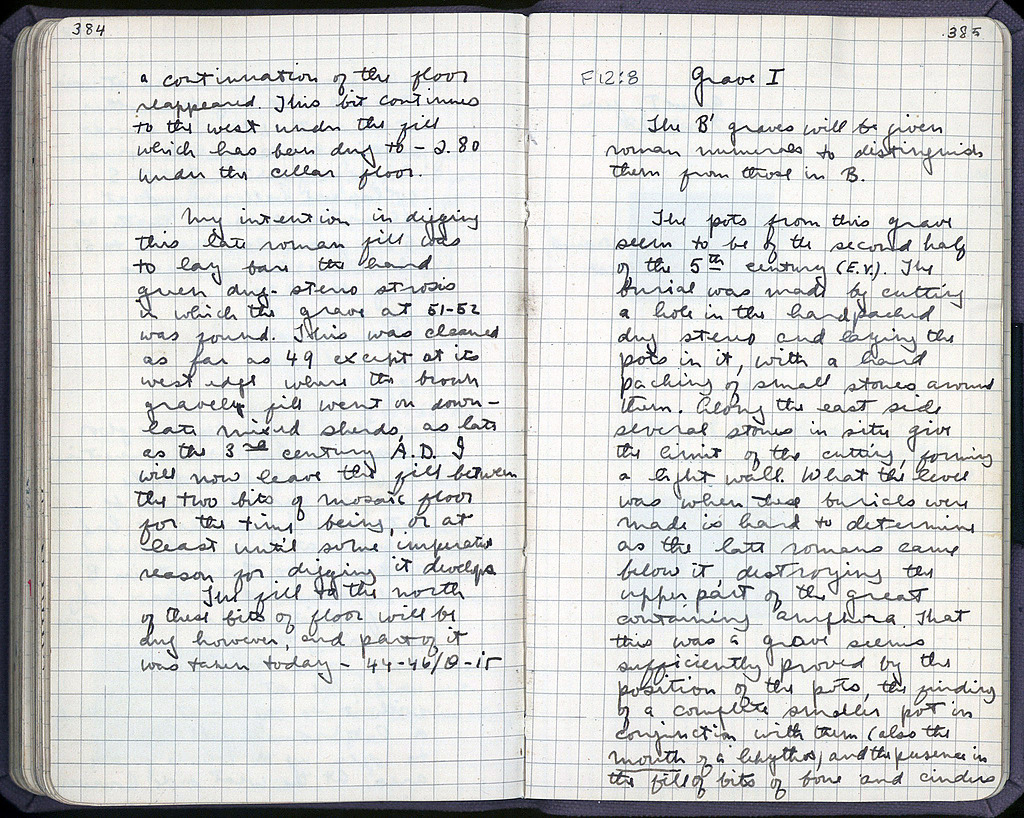 384
a continuation of the floor
reappeared. This bit continues
to the west under the fill
which has been dug to - 2.80
under the cellar floor.
My intention in digging
this late roman fill was
to lay bare the hard
green dug-stereo strosis
in which the grave at 51-52
was found. This was cleaned
as far as 49 except at its
west edge where the brown
gravely fill went on down -
late mixed sherds, as late
as the 3rd century A.D. I
will now leave the fill between
the two bits of mosaic floor
for the time being, or at
least until some imperative
reason for digging it develops.
The fill to the north
of these bits of floor will be
dug however, and part of it
was taken today - 44-46/Θ-ΙΕ
385
F12:8 Grave I
The B' graves will be given
roman numerals to distinguish
them from those in B.
The pots from this grave
seem to be of the second half
of the 5th century (E.V.). The
burial was made by cutting
a hole in the hardpacked
dug stereo and laying the
pots in it, with a hard
packing of small stones around
them. Along the east side
several stones in situ give
the limit of the cutting, forming
a light wall. What the level
was when these burials were
made is hard to determine
as the late romans came
below it, destroying the
upper part of the great
containing amphora. That
this was a grave seems
sufficiently proved by the
position of the pots, the finding
of a complete smaller pot in
conjunction with them (also the
mouth of a lekythos) and the presence in
the fill of bits of bone and cinders